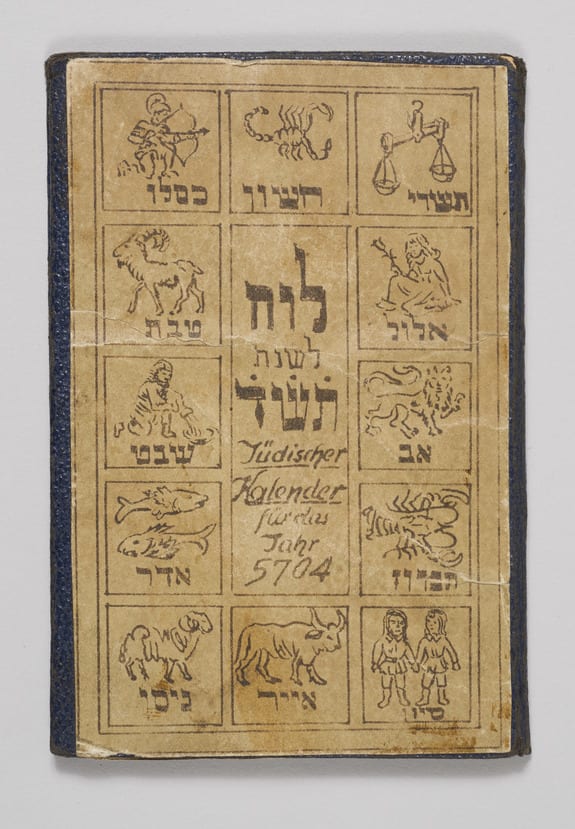 תשרי
חשון
כסלו
אלול
טבת
לוח
לשנת
תש״ד
Jüdischer
Kalender
für das
Jahr
5704
אב
שבט
תמוז
אדר
סיון
אייר
ניסן